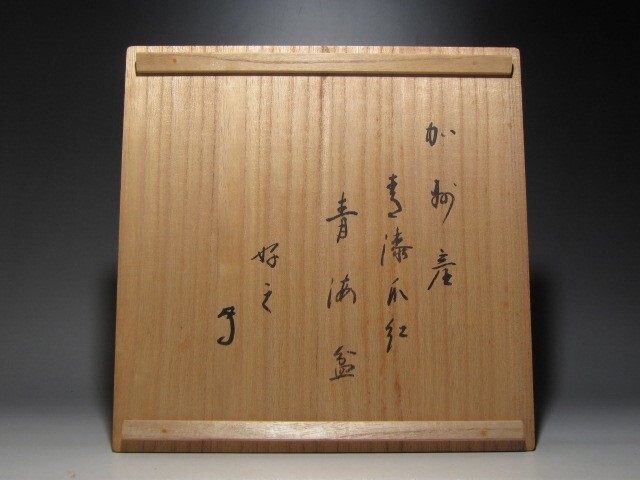 加州産
青漆爪紅
青海盆
好之